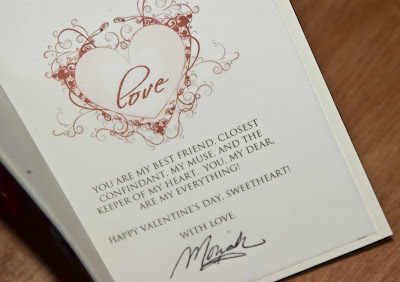 love
YOU ARE MY BEST FRIEND, CLOSEST
CONFINDANT, MY MUSE, AND THE
KEEPER OF MY HEART. YOU, MY DEAR,
ARE MY EVERYTHING!
HAPPY VALENTINE'S DAY, SWEETHEART!
WITH LOVE,
Moriah